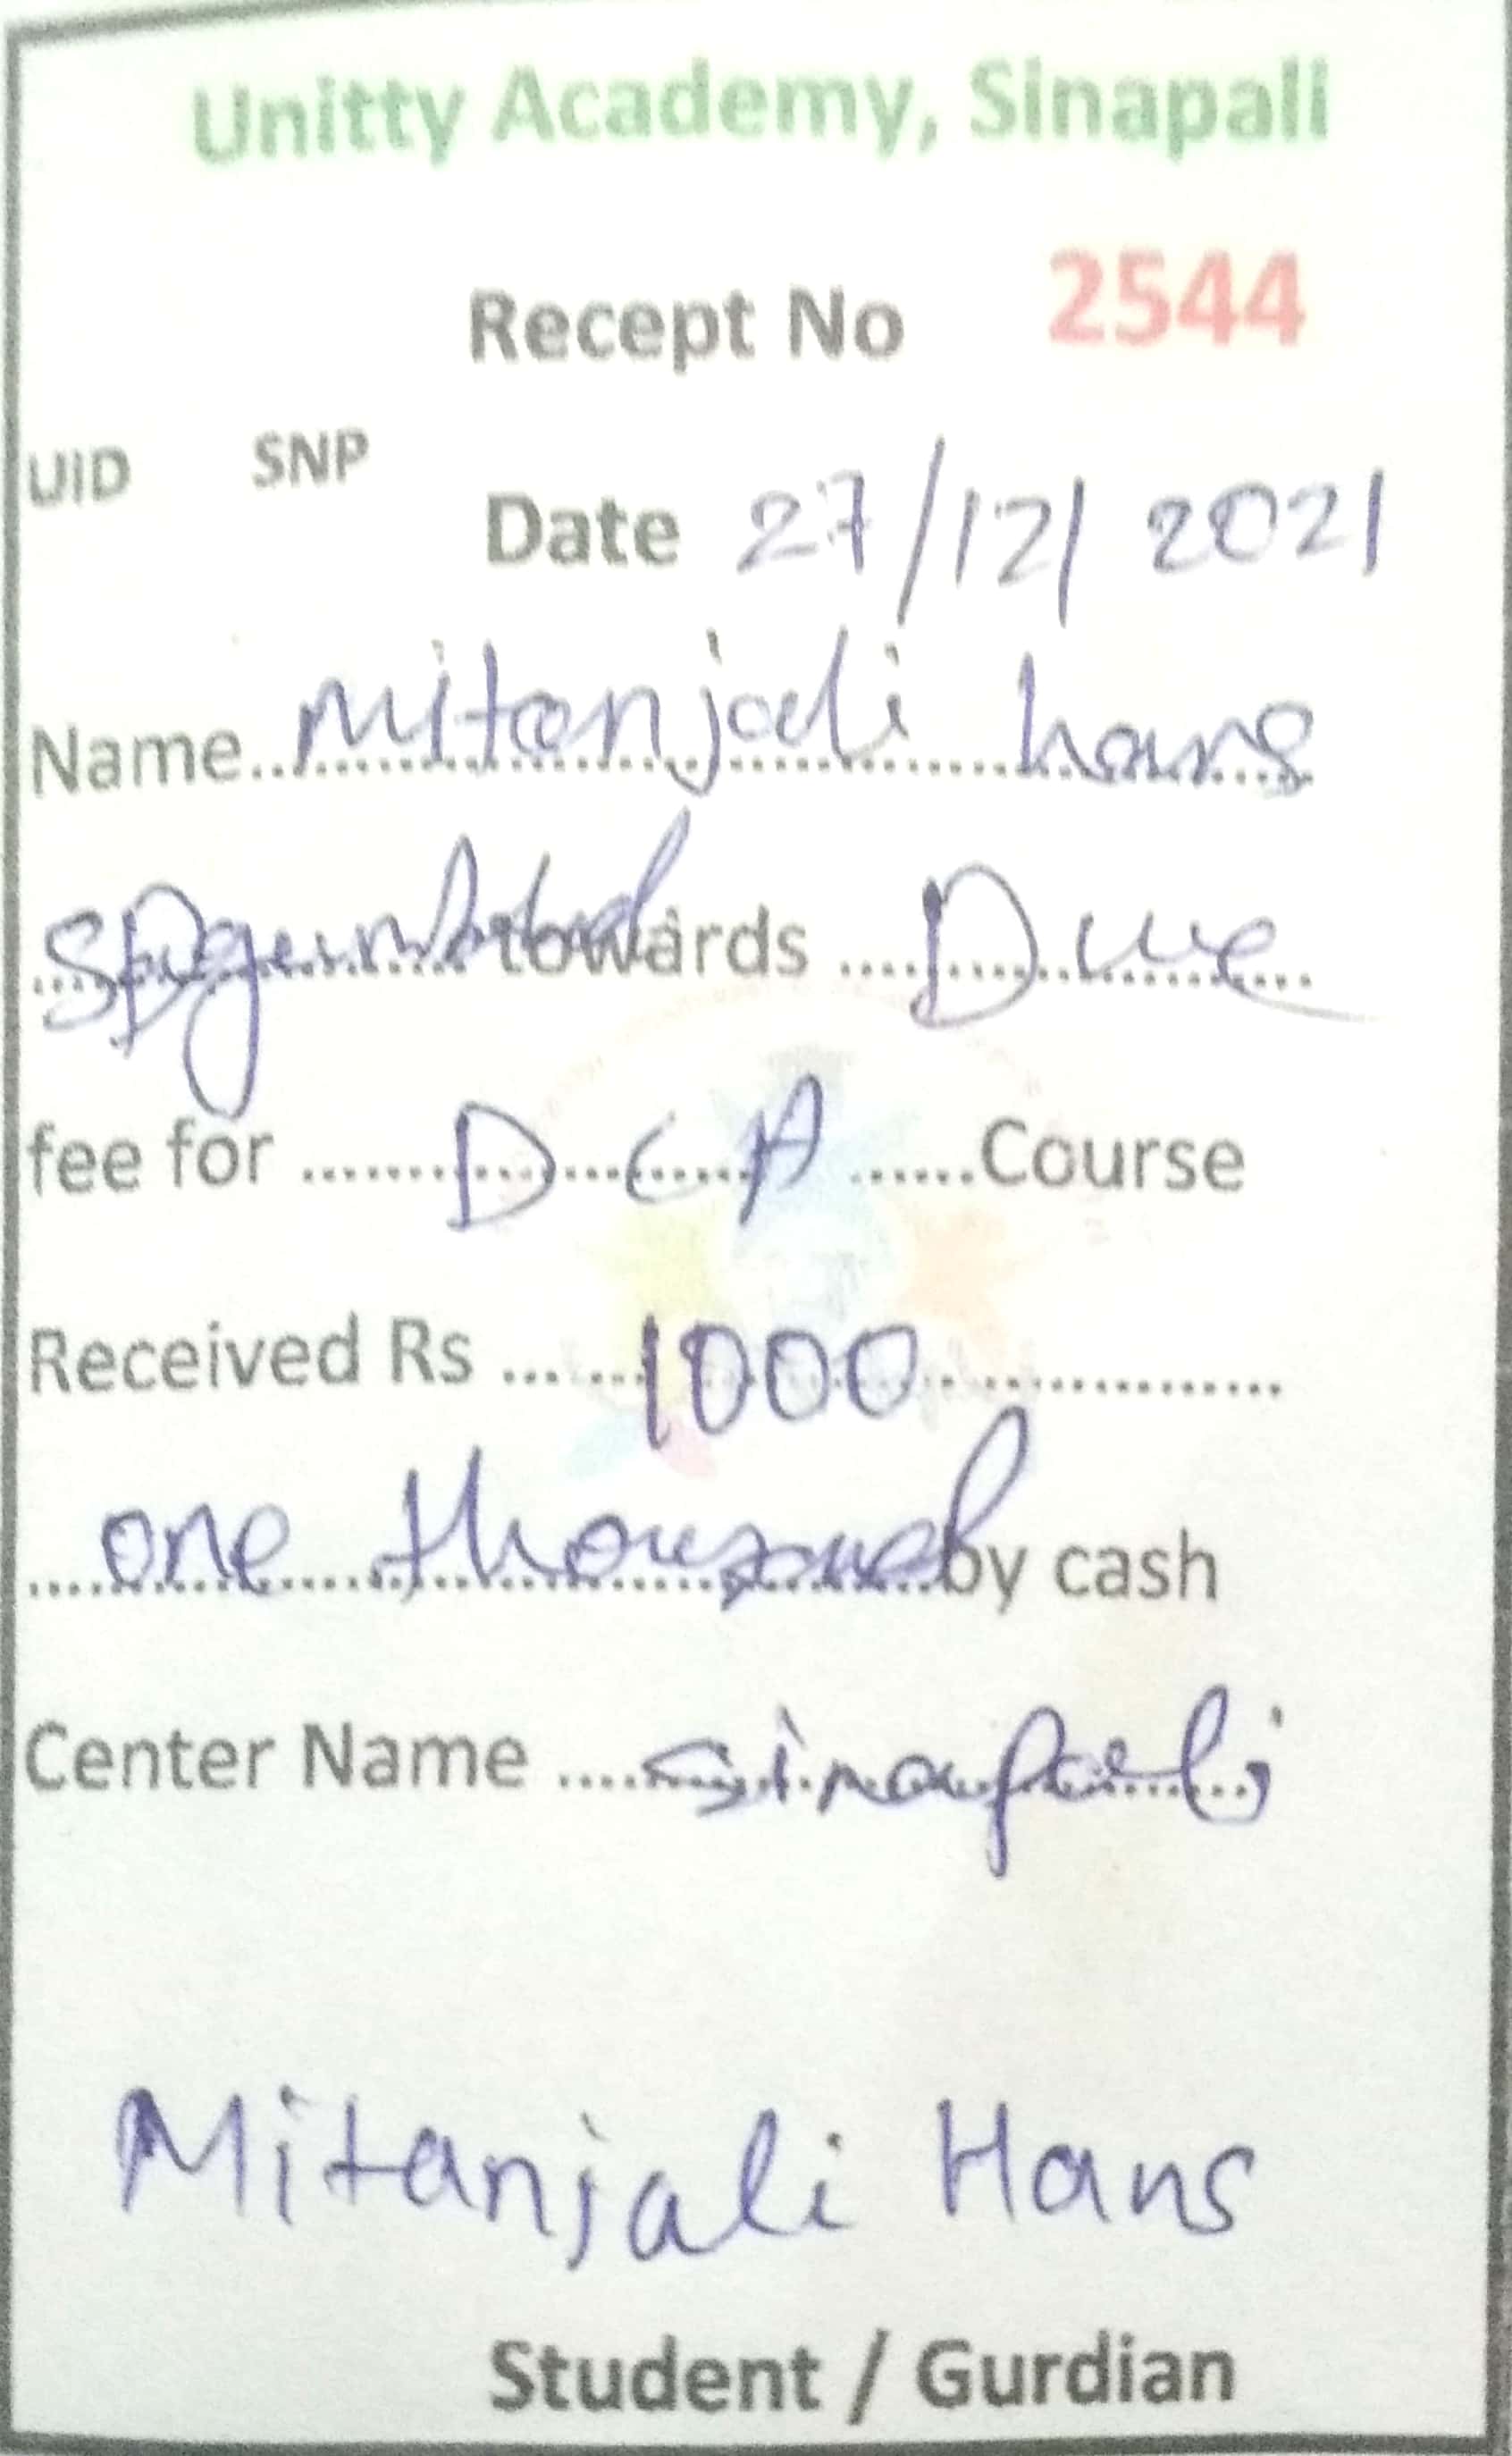 Unitty Academy, Sinapali
Recept No 2544
UID SNP
Date 27/12/2021
Name.. mitanjali hans
towards .... Due
fee for ....... D C A ......Course
Received Rs ...... 1000 ..............
one thousand by cash
Center Name .... sinapali
Mitanjali Hans
Student / Gurdian